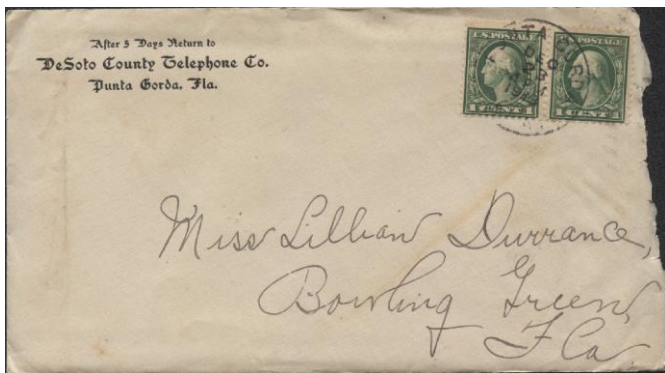 After 5 Days Return to
DeSoto County Telephone Co.
Punta Gorda, Fla.
U.S. POSTAGE
1 CENT 1
U.S. POSTAGE
1 CENT 1
Miss Lillian Durrance,
Bowling Green,
Fla